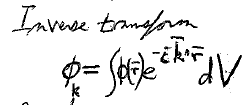 Inverse transform
ϕ_k = ∫ϕ(r̄)e^{-i k̄·r̄} dV